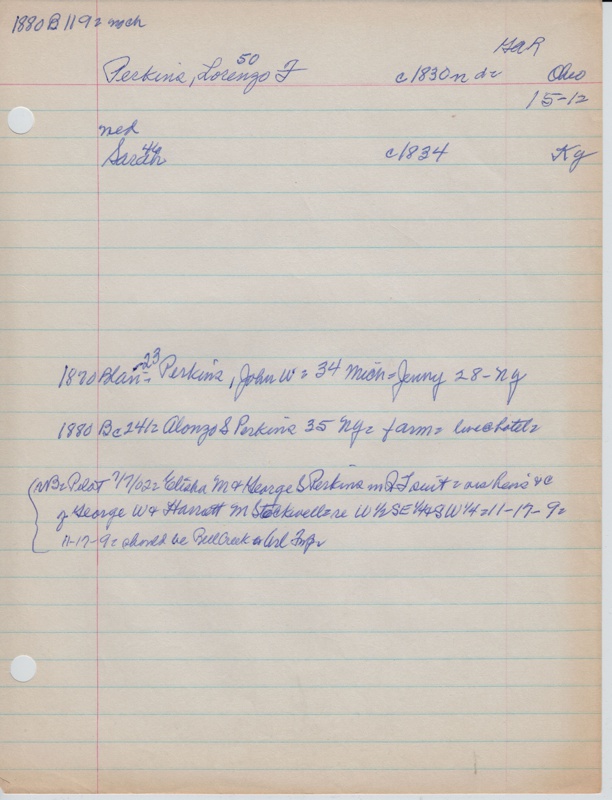 1880 B 119 = mch
G&R
50
Perkins, Lorenzo F c1830 n d = Ohio
15-12
med
46
Sarah c1834 Ky
1870 Blair = 23 Perkins, John W = 34 Mich = Jenny 28 - Ny
1880 Bc 241 = Alonzo S Perkins 35 Ny = farm = live hotel =
NB = Pilot 7/17/02 = Elisha M & George S Perkins in suit = as heirs &c
of George W & Harrott M Stockwell = re W 1/2 SE 1/4 & SW 1/4 = 11-17-9 =
11-17-9 = should be Bell Creek or Arl Twp